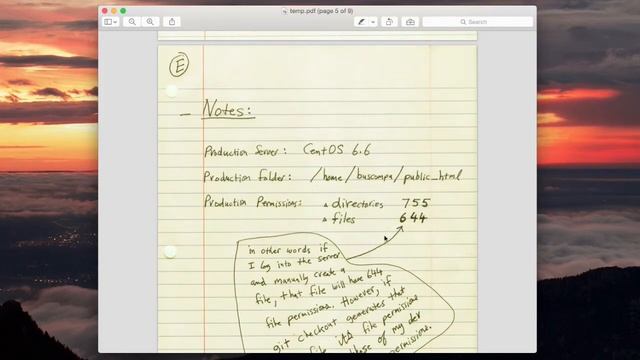 temp.pdf (page 5 of 9)
Search
E
- Notes:
Production Server: CentOS 6.6
Production Folder: /home/buscompa/public_html
Production Permissions: △ directories 755
△ files 644
in other words if
I log into the server
and manually create a
file, that file will have 644
file permissions. However, if
git checkout generates that
file its file permission
those of my dev
permissions.